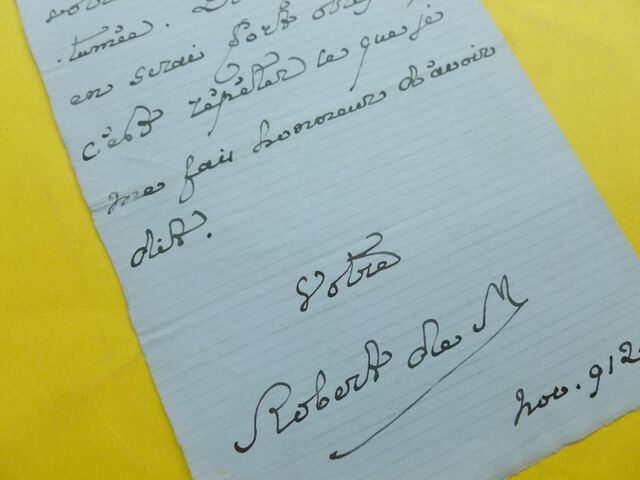 tumée.
en serai fort
c'est répéter ce que je
me fais honneur d'avoir
dit.
Votre
Robert de M
nov. 912